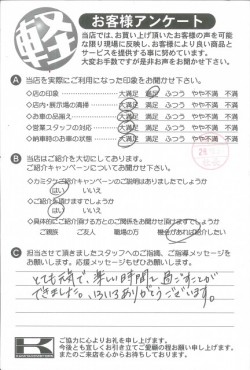 軽
お客様アンケート
当店では、お買い上げ頂いたお客様の声を可能
な限り現場に反映し、お客様により良い商品と
サービスを提供する事に努めています。
大変お手数ですが是非お声をお聞かせ下さい。
A 当店を実際にご利用になった印象をお聞かせ下さい。
◇店の印象 大満足 満足 ふつう やや不満 不満
◇店内・展示場の清掃 大満足 満足 ふつう やや不満 不満
◇お車の品揃え 大満足 満足 ふつう やや不満 不満
◇営業スタッフの対応 大満足 満足 ふつう やや不満 不満
◇納車時のお車の状態 大満足 満足 ふつう やや不満 不満
B 当店はご紹介を大切にしております。
ご紹介キャンペーンについてお聞かせ下さい。
◇カミタウンご紹介キャンペーンのご説明はありましたでしょうか
はい いいえ
◇ご紹介を頂けますでしょうか
はい いいえ
◇具体的にご紹介頂ける方とのご関係をお聞かせ頂けますでしょうか
ご親族 ご友人 職場の方 機会があれば紹介したい
C 担当させて頂きましたスタッフへのご指摘、ご指導メッセージを
お願いします。応援メッセージもぜひお願いします。
とても元気で、楽しい時間を過ごすことが
できました。いろいろありがとうございます。
K
ご協力に心よりお礼を申し上げます。
今後とも宜しくお引き立てご愛顧の程お願い申し上げます。
またのご来店を心からお待ちしております。